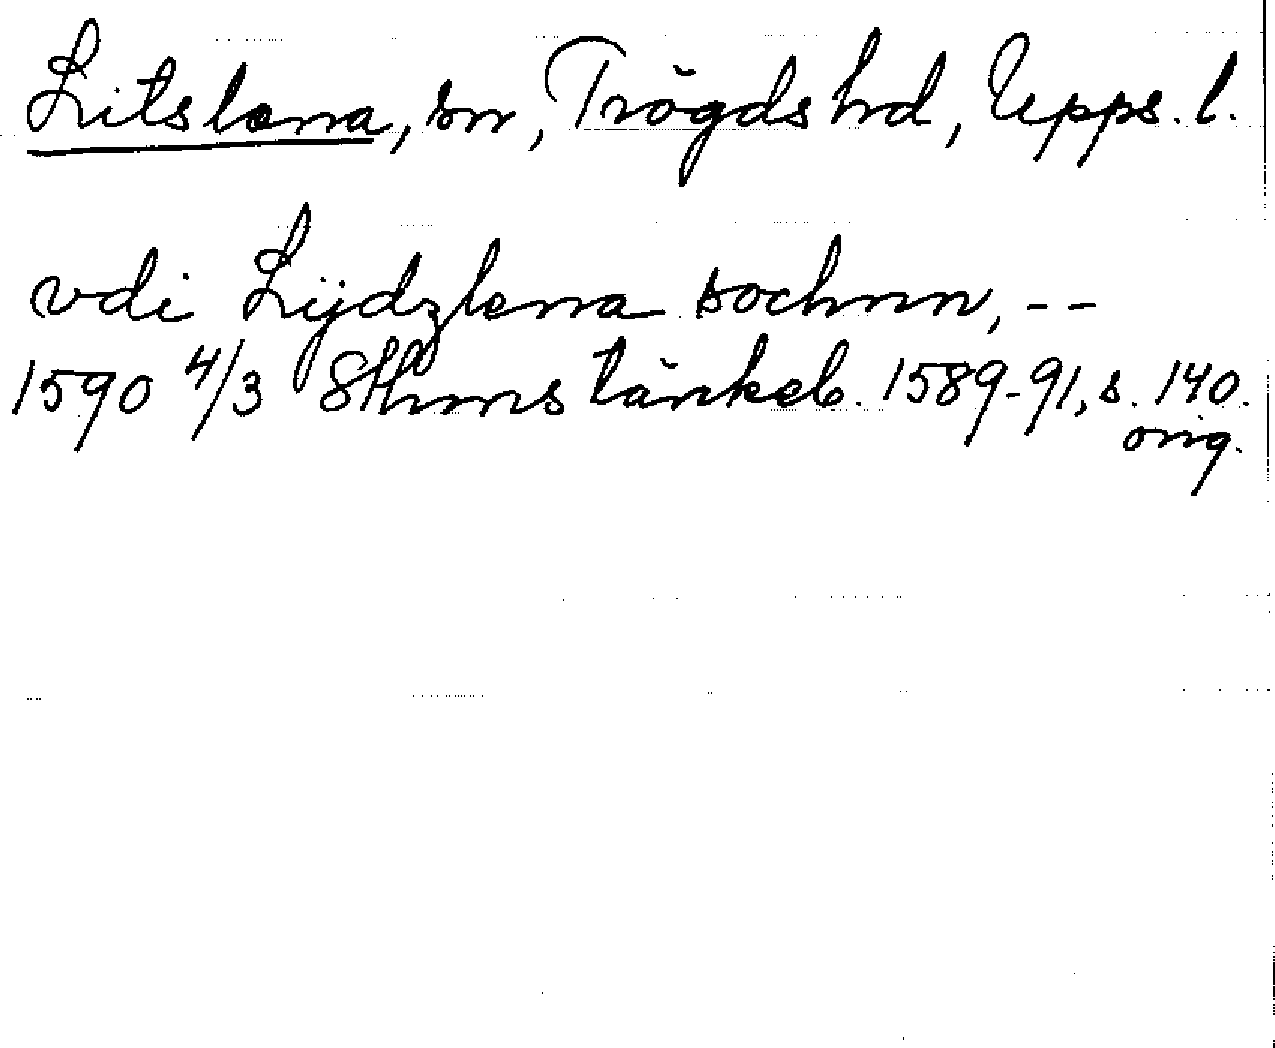 Litslena, sn, Trögds hd, Upps. l.
vdi Lijdzlena sochnn, --
1590 4/3 Sthms tänkeb. 1589-91, s. 140.
orig.